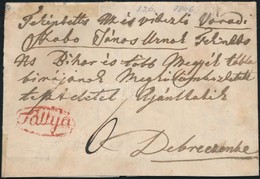 1846
Tekintetes és vitézlő Váradi
Szabo János Urnak Tekintetes
Ns Bihar és több Megyék tábla
birájának
tisztelettel ajánltatik
Tállya
Debreczenbe